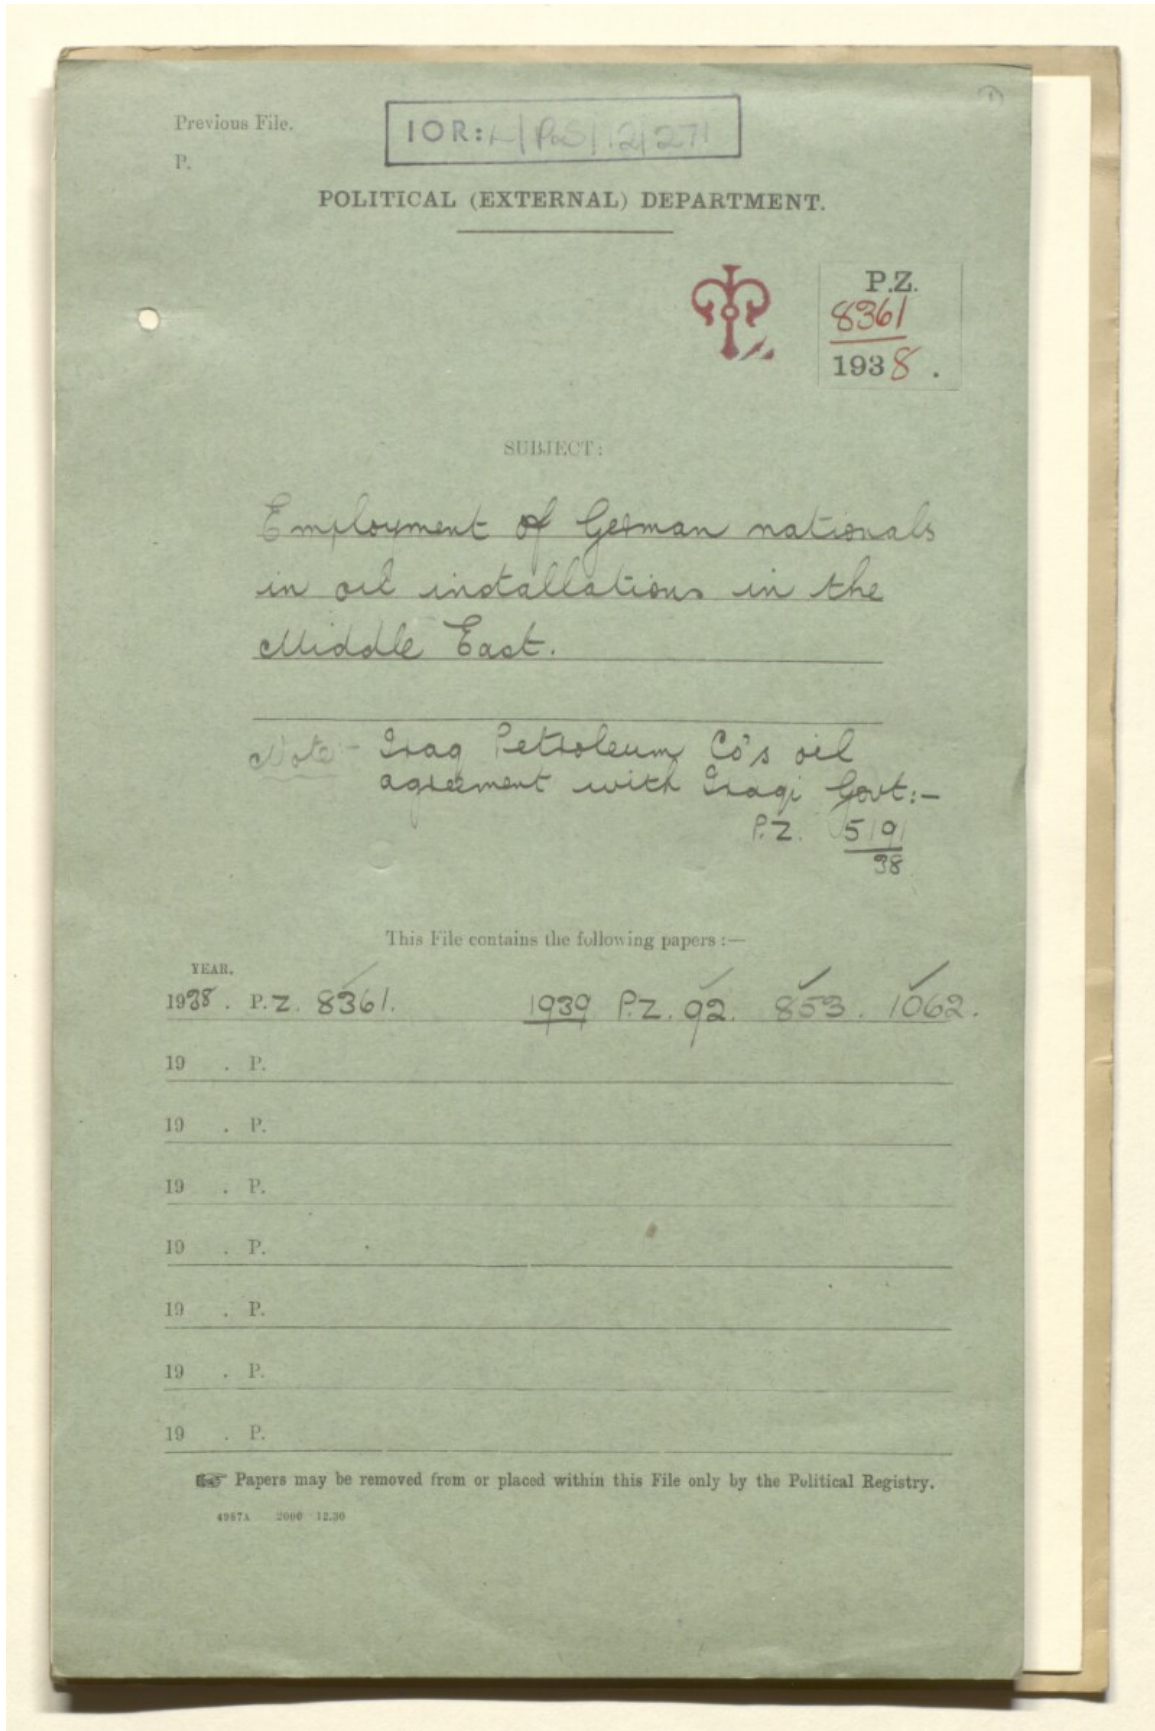 Previous File.
IOR: L/P&S/12/271
P.
POLITICAL (EXTERNAL) DEPARTMENT.
P.Z.
8361
1938.
SUBJECT:
Employment of German nationals
in oil installations in the
Middle East.
Note:- Iraq Petroleum Co's oil
agreement with Iraqi Govt:-
P.Z. 5191
38
This File contains the following papers:—
YEAR.
1938. P.Z. 8361. 1939 P.Z. 92. 853. 1062.
19 . P.
19 . P.
19 . P.
19 . P.
19 . P.
19 . P.
19 . P.
Papers may be removed from or placed within this File only by the Political Registry.
4987A 2000 12.30